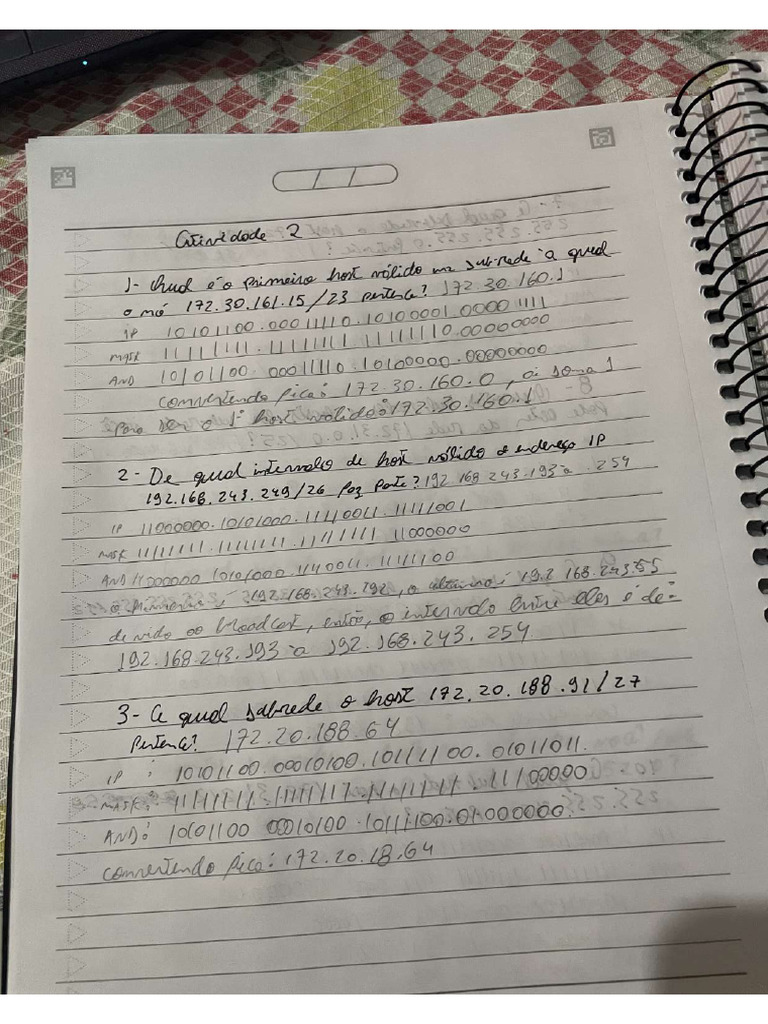 Atividade 2
1- Qual é o primeiro host válido na sub-rede a qual
o nó 172.30.161.15/23 pertence? 172.30.160.1
IP 10101100.00011110.10100001.00001111
MASK 11111111.11111111.11111110.00000000
AND 10101100.00011110.10100000.00000000
convertendo fica: 172.30.160.0, ai soma 1
para ser o 1º host válido: 172.30.160.1
2- De qual intervalo de host válido o endereço IP
192.168.243.249/26 faz parte? 192 168 243.193 a .254
IP 11000000.10101000.11110011.11111001
MASK 11111111.11111111.11111111 11000000
AND 11000000 10101000.11110011.11111100
o primeiro é 192.168.243.192, o último é 192 168.243.255
devido ao broadcast, então, o intervalo entre eles é de:
192.168.243.193 a 192.168.243.254
3- A qual subrede o host 172.20.188.91/27
pertence? 172.20.188.64
IP : 10101100.00010100.10111100.01011011.
MASK: 11111111.11111111.11111111.11100000
AND: 10101100 00010100.10111100.01000000
convertendo fica: 172.20.18.64